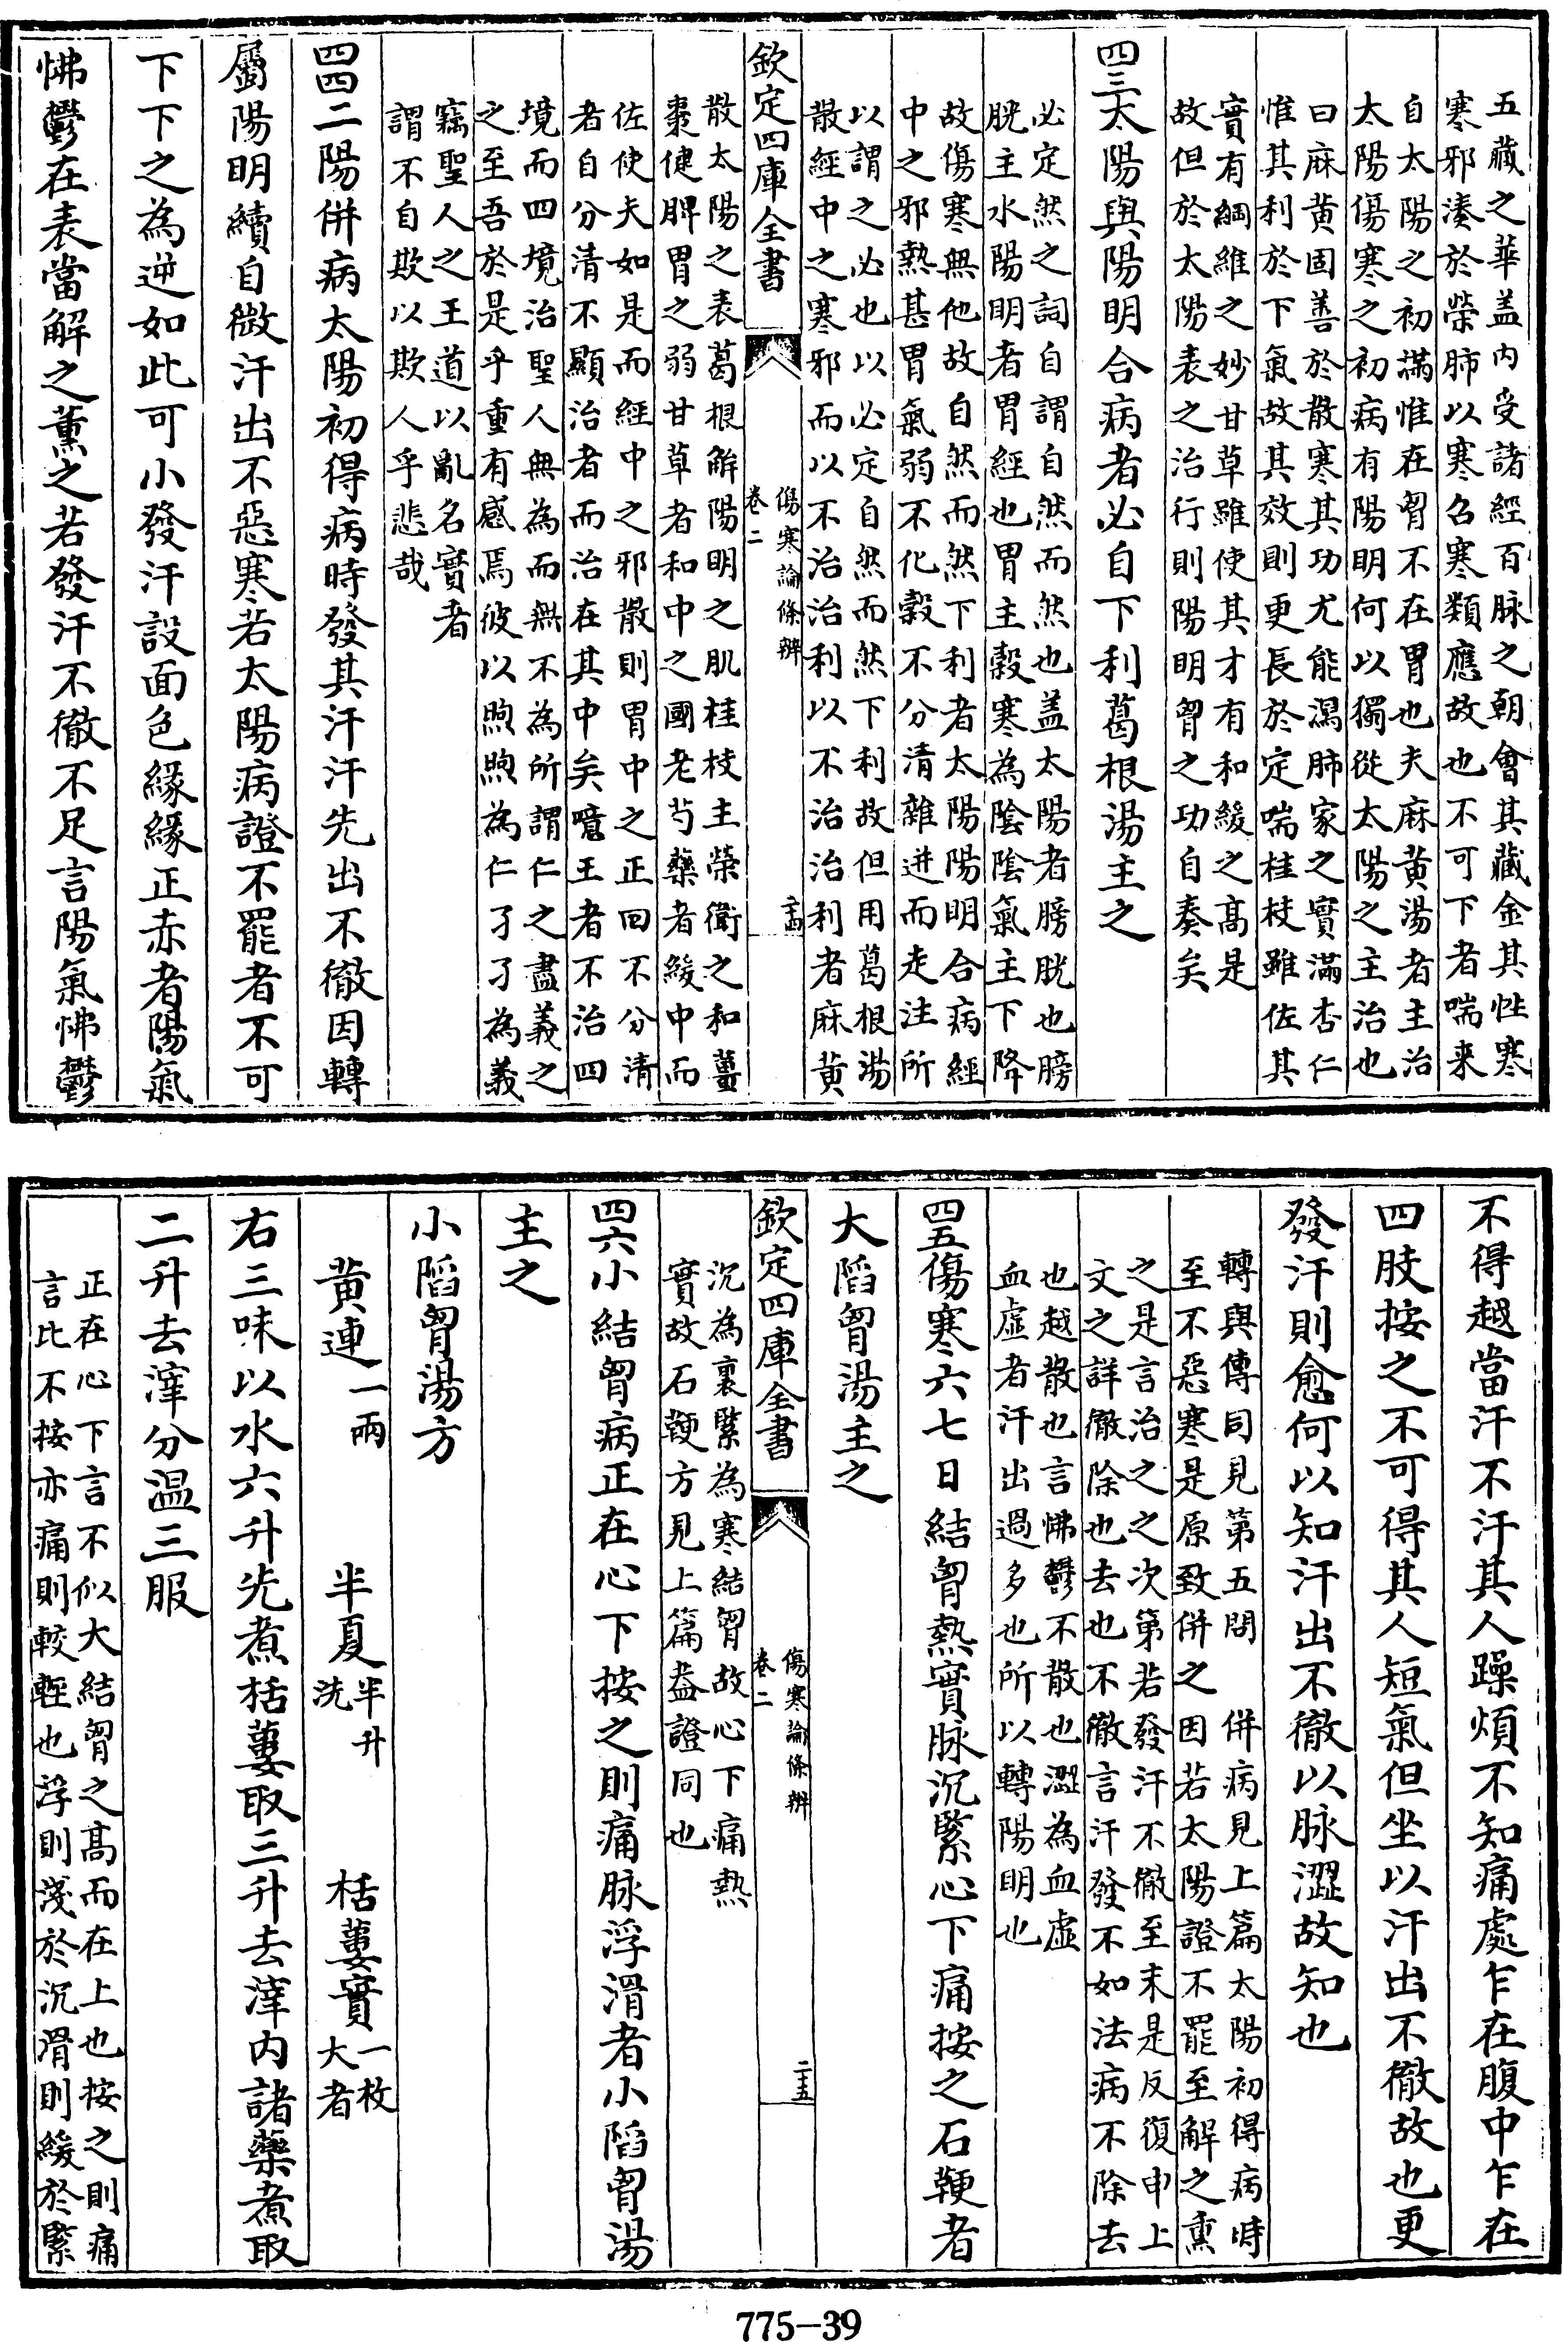 五藏之華盖内受諸經百脉之朝會其藏金其性寒
寒邪湊於榮肺以寒召寒類應故也不可下者喘来
自太陽之初滿惟在胷不在胃也夫麻黄湯者主治
太陽傷寒之初病有陽明何以獨從太陽之主治也
曰麻黄固善於散寒其功尤能㵼肺家之實滿杏仁
惟其利於下氣故其效則更長於定喘桂枝雖佐其
實有綱維之妙甘草雖使其才有和緩之髙是
故但於太陽表之治行則陽明胷之功自奏矣
四三太陽與陽明合病者必自下利葛根湯主之
必定然之詞自謂自然而然也盖太陽者膀胱也膀
胱主水陽明者胃經也胃主穀寒為陰陰氣主下降
故傷寒無他故自然而然下利者太陽陽明合病經
中之邪熱甚胃氣弱不化穀不分清雜迸而走注所
以謂之必也以必定自然而然下利故但用葛根湯
散經中之寒邪而以不治治利以不治治利者麻黄
欽定四庫全書
傷寒論條辨
卷二
二十四
散太陽之表葛根解陽明之肌桂枝主榮衛之和薑
棗健脾胃之弱甘草者和中之國老芍藥者緩中而
佐使夫如是而經中之邪散則胃中之正回不分清
者自分清不顯治者而治在其中矣噫王者不治四
境而四境治聖人無為而無不為所謂仁之盡義之
之至吾於是乎重有感焉彼以煦煦為仁孑孑為義
竊聖人之王道以亂名實者
謂不自欺以欺人乎悲哉
四四二陽併病太陽初得病時發其汗汗先出不徹因轉
屬陽明續自微汗出不惡寒若太陽病證不罷者不可
下下之為逆如此可小發汗設面色緣緣正赤者陽氣
怫鬱在表當解之薰之若發汗不徹不足言陽氣怫鬱
不得越當汗不汗其人躁煩不知痛處乍在腹中乍在
四肢按之不可得其人短氣但坐以汗出不徹故也更
發汗則愈何以知汗出不徹以脉澀故知也
轉與傳同見第五問　併病見上篇太陽初得病時
至不惡寒是原致併之因若太陽證不罷至解之熏
之是言治之之次第若發汗不徹至末是反復申上
文之詳徹除也去也不徹言汗發不如法病不除去
也越散也言怫鬱不散也澀為血虛
血虛者汗出過多也所以轉陽明也
四五傷寒六七日結胷熱實脉沉緊心下痛按之石鞕者
大陷胷湯主之
欽定四庫全書
傷寒論條辨
卷二
二十五
沉為裏緊為寒結胷故心下痛熱
實故石鞕方見上篇葢證同也
四六小結胷病正在心下按之則痛脉浮滑者小陷胷湯
主之
小陷胷湯方
黄連一兩　半夏半升洗　栝蔞實一枚大者
右三味以水六升先煮栝蔞取三升去滓内諸藥煮取
二升去滓分温三服
正在心下言不似大結胷之髙而在上也按之則痛
言比不按亦痛則較輕也浮則淺於沉滑則緩於緊
775-39